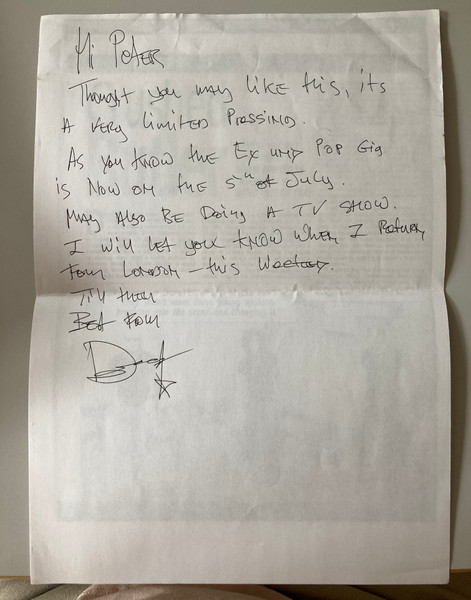 Hi Peter
Thought you may like this, its
A very limited Pressing.
As you know the Ex and Pop Gig
is Now on the 5th of July.
May Also Be Doing A TV Show.
I will let you know when I Return
From London – this Weekend.
Till then
Best From